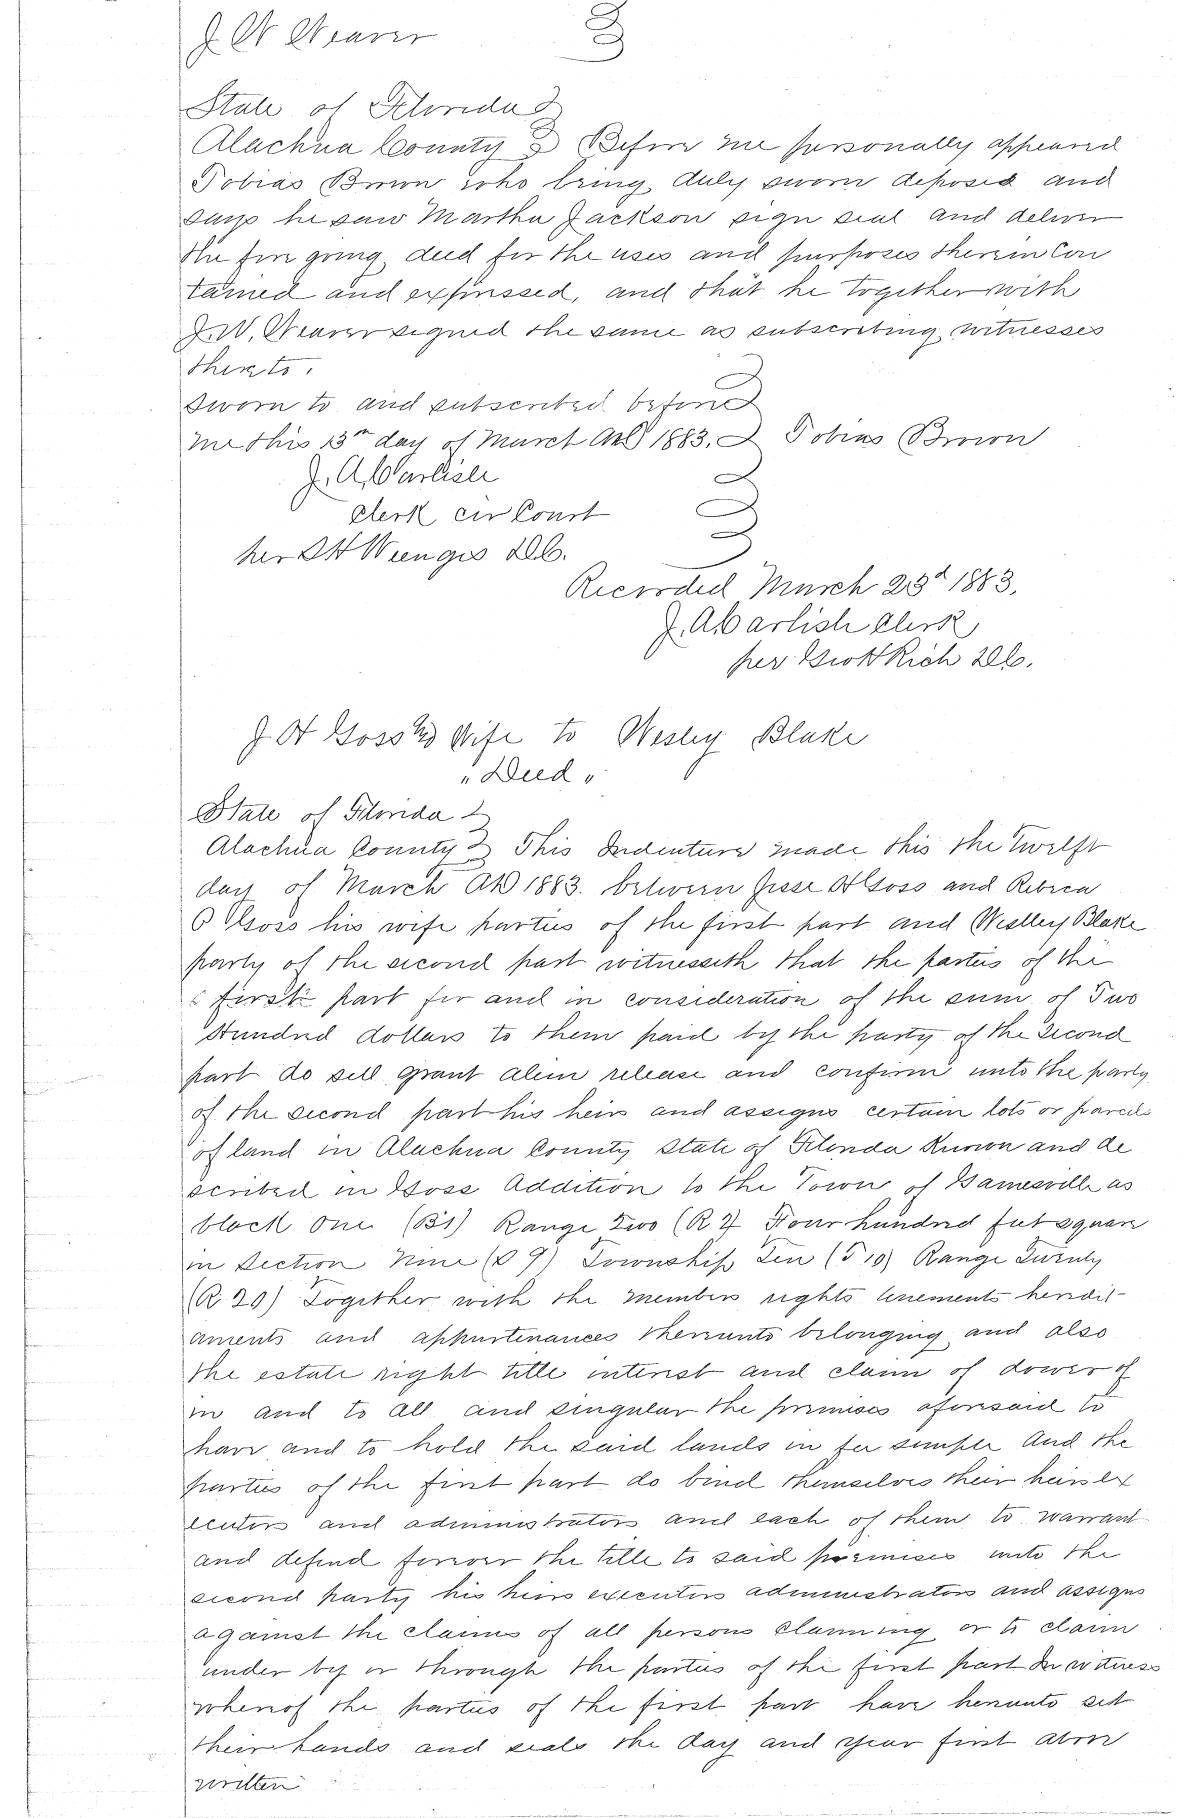 J W Weaver
State of Florida
Alachua County Before me personally appeared
Tobias Brown who being duly sworn deposes and
says he saw Martha Jackson sign seal and deliver
the fore going deed for the uses and purposes therein Con
tained and expressed, and that he together with
J. W. Weaver signed the same as subscribing witnesses
thereto.
Sworn to and subscribed before
me this 13th day of March AD 1883. Tobias Brown
J. A. Carlisle
Clerk cir Court
per D.C.
Recorded March 23d 1883.
J. A. Carlisle Clerk
per Rich D.C.
J H Goss & Wife to Wesley Blake
"Deed"
State of Florida
Alachua County This Indenture made this the Twelft
day of March AD 1883. between Jesse H Goss and Rebeca
Goss his wife parties of the first part and Westley Blake
party of the second part witnesseth that the parties of the
first part for and in consideration of the sum of Two
Hundred dollars to them paid by the party of the second
part do sell grant alien release and confirm unto the party
of the second part his heirs and assigns certain lots or parcels
of land in Alachua County State of Florida Known and de
scribed in Goss Addition to the Town of Gainesville as
block One (B1) Range Two (R 2) Four hundred feet square
in Section Nine (S 9) Township Ten (T 10) Range Twenty
(R 20) Together with the members rights tenements heridit-
aments and appurtenances thereunto belonging and also
the estate right title interest and claim of dower of
in and to all and singular the premises aforesaid to
have and to hold the said lands in fee simple And the
parties of the first part do bind themselves their heirs ex
ecutors and administrators and each of them to warrant
and defend forever the title to said premises unto the
second party his heirs executors administrators and assigns
against the claims of all persons claiming or to claim
under by or through the parties of the first part In witness
whereof the parties of the first part have hereunto set
their hands and seals the day and year first above
written